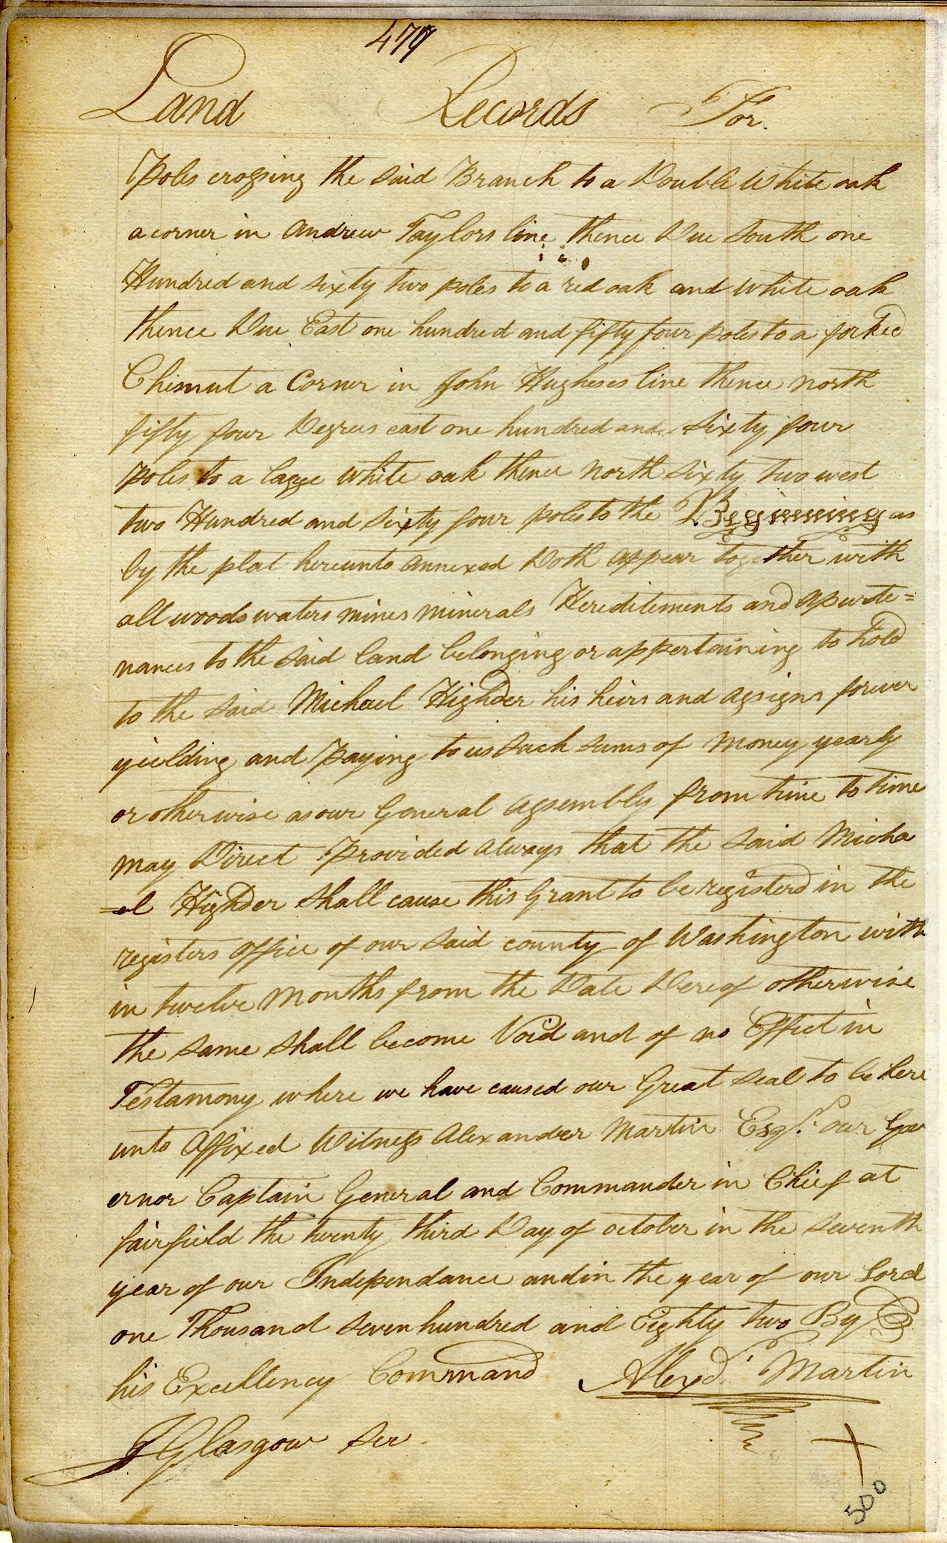 479
Land Records For.
Poles crossing the said Branch to a Double White oak
a corner in Andrew Taylors line thence Due South one
Hundred and sixty two poles to a red oak and white oak
thence Due East one hundred and fifty four poles to a forked
Chesnut a Corner in John Hugheses line thence north
fifty four Degrees east one hundred and sixty four
poles to a large white oak thence north sixty two west
two Hundred and sixty four poles to the Beginning as
by the plat hereunto annexed Doth appear together with
all woods waters mines minerals Hereditements and apurte=
nances to the said land belonging or appertaining to hold
to the said Michael Highder his heirs and assigns forever
yielding and paying to us such sums of money yearly
or otherwise as our General assembly from time to time
may Direct Provided always that the said Micha
=el Highder shall cause this Grant to be registerd in the
registers office of our said county of Washington with
in twelve months from the Date Hereof otherwise
the same shall become Void and of no Effect in
Testamony where we have caused our Great seal to be here
unto affixed Witness Alexander Martin Esqr. our Gov
ernor Captain General and Commander in Chief at
fairfield the twenty third Day of october in the seventh
year of our Independance and in the year of our Lord
one Thousand seven hundred and Eighty two By
his Excellency Command Alexd. Martin
J Glasgow Ser.
500